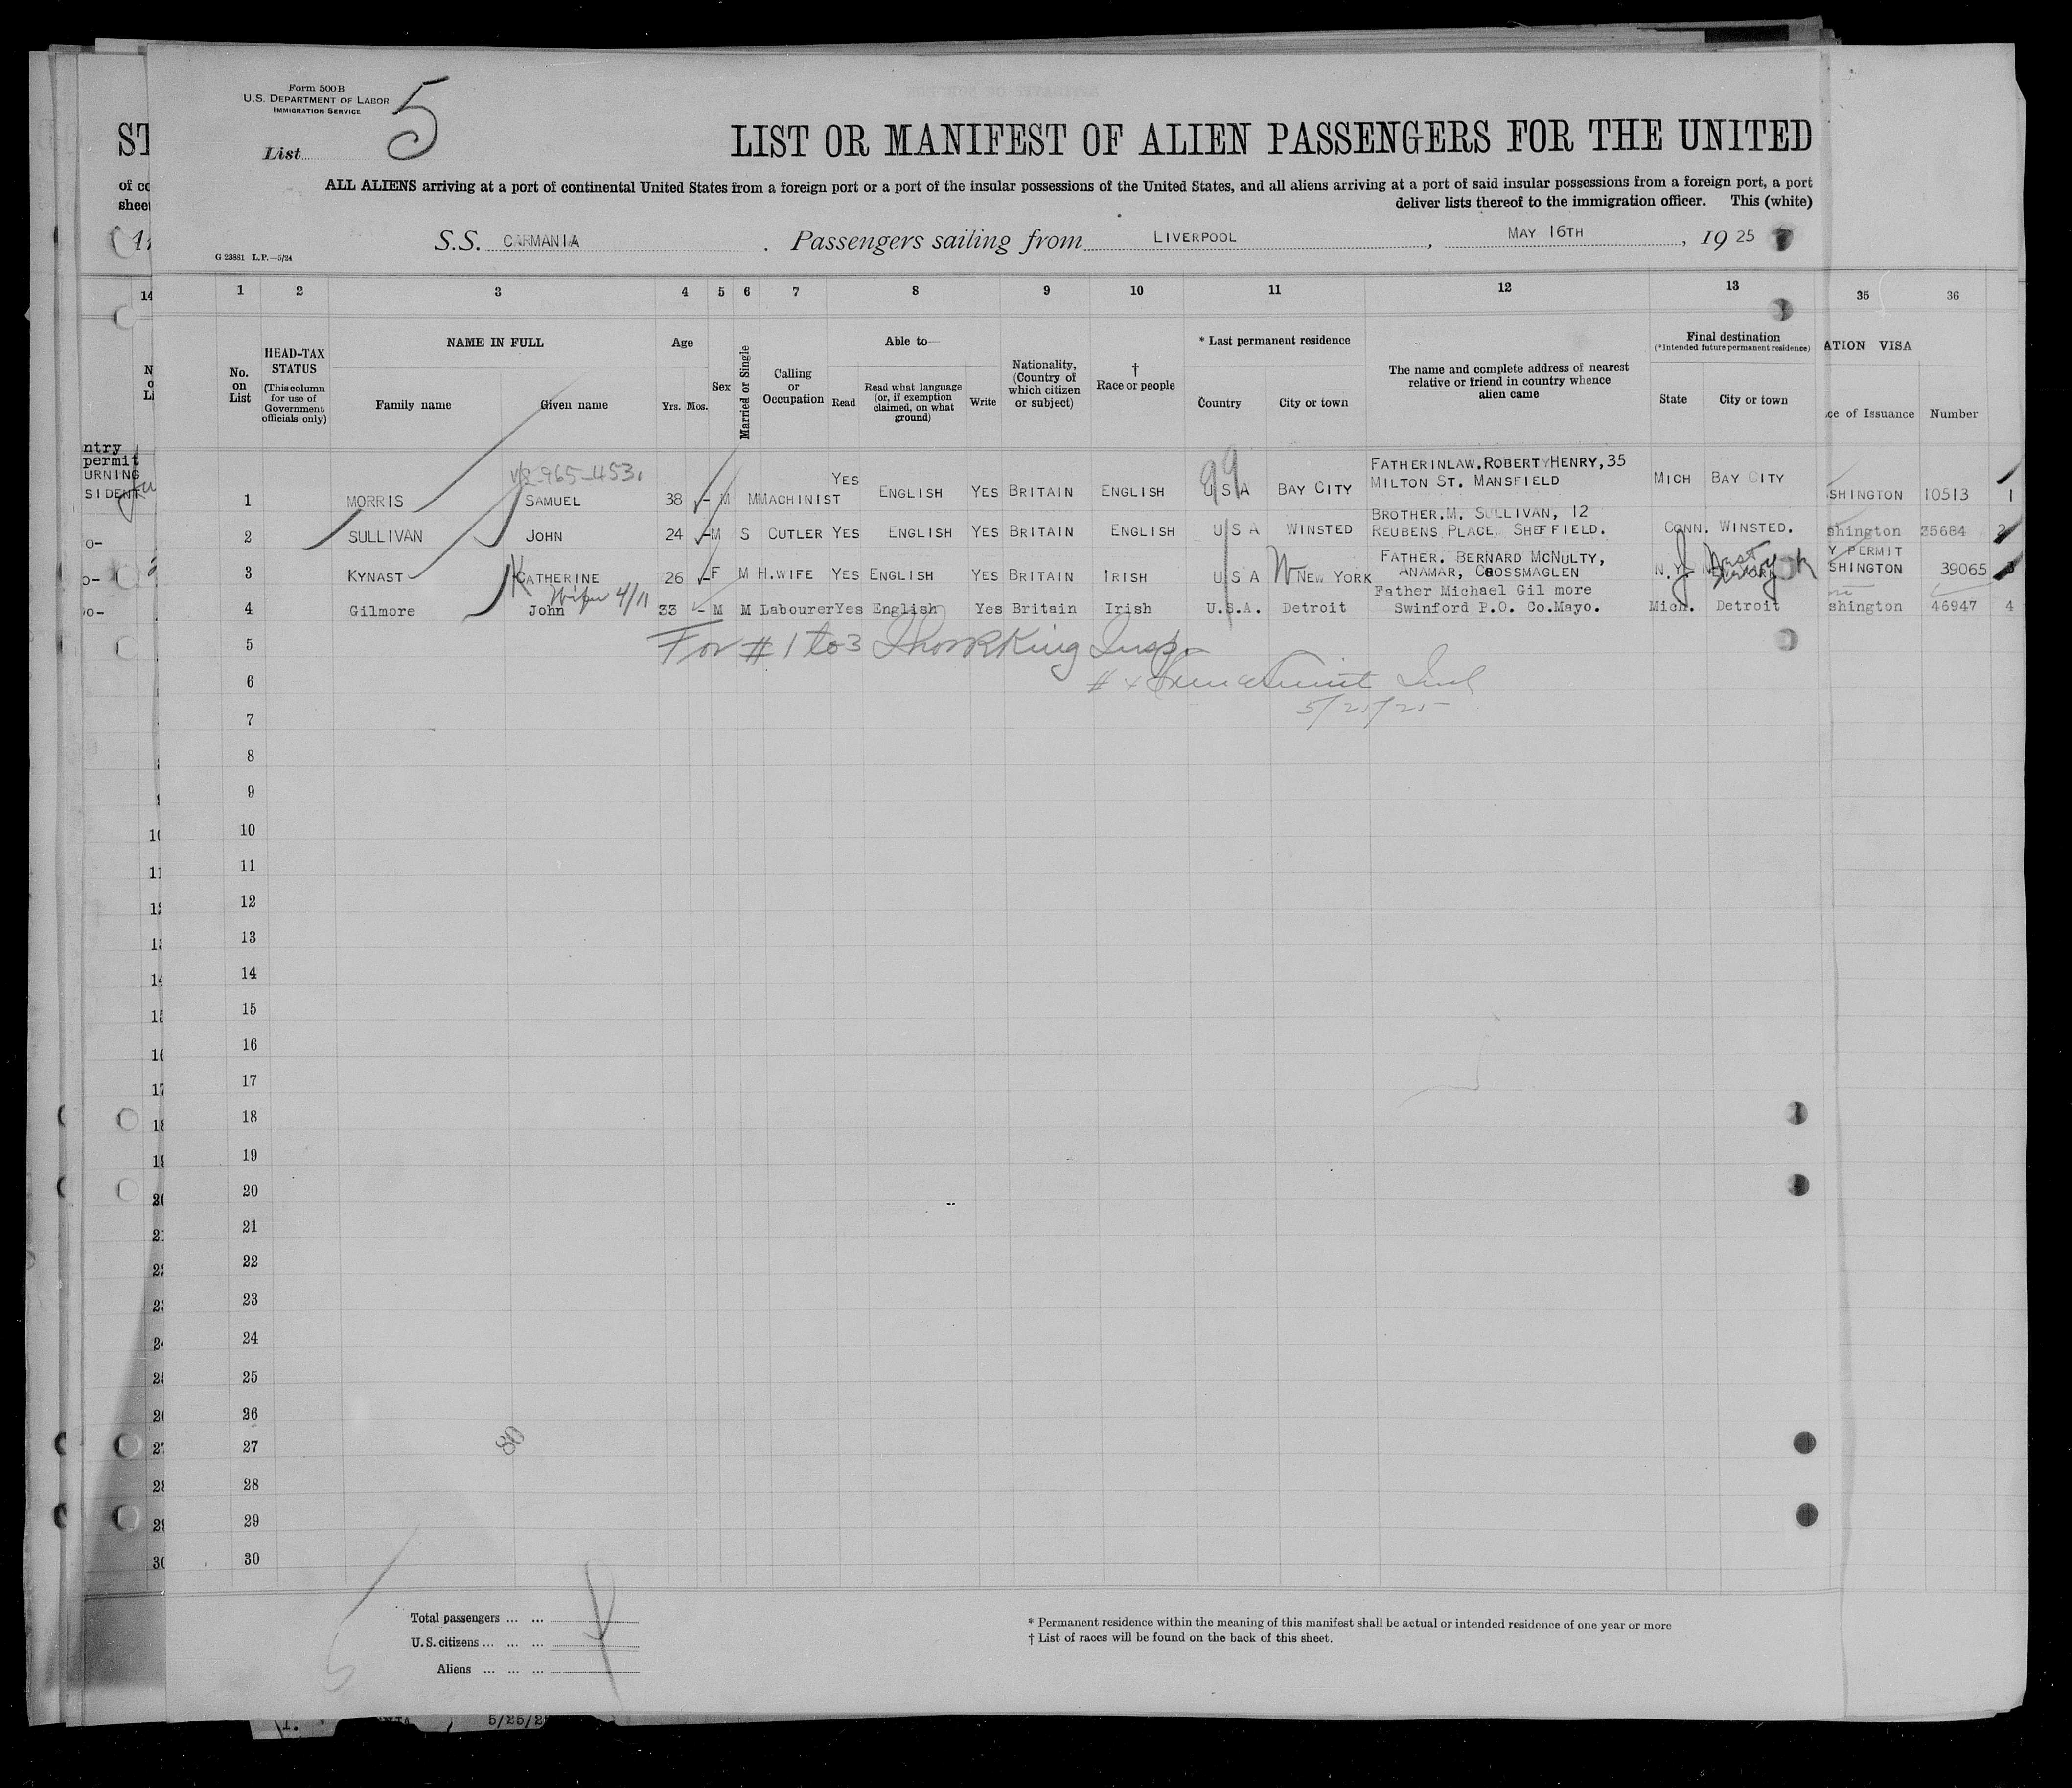 Form 500 B
U.S. DEPARTMENT OF LABOR
IMMIGRATION SERVICE
List 5
LIST OR MANIFEST OF ALIEN PASSENGERS FOR THE UNITED
ALL ALIENS arriving at a port of continental United States from a foreign port or a port of the insular possessions of the United States, and all aliens arriving at a port of said insular possessions from a foreign port, a port
deliver lists thereof to the immigration officer. This (white)
S.S. CARMANIA . Passengers sailing from LIVERPOOL , MAY 16TH , 19 25
G 23861 L.P.—5/24
1 2 3 4 5 6 7 8 9 10 11 12 13 35 36
No. on List
HEAD-TAX STATUS
(This column for use of Government officials only)
NAME IN FULL
Family name
Given name
Age
Yrs. Mos.
Sex
Married or Single
Calling or Occupation
Able to—
Read
Read what language (or, if exemption claimed, on what ground)
Write
Nationality, (Country of which citizen or subject)
† Race or people
* Last permanent residence
Country
City or town
The name and complete address of nearest relative or friend in country whence alien came
Final destination
(*Intended future permanent residence)
State
City or town
ATION VISA
ce of Issuance
Number
ntry
permit
URNING
SIDENT
1 MORRIS SAMUEL 38 - M M MACHINIST YES ENGLISH YES BRITAIN ENGLISH U S A BAY CITY FATHERINLAW. ROBERT HENRY, 35 MILTON ST. MANSFIELD MICH BAY CITY SHINGTON 10513 1
2 SULLIVAN JOHN 24 - M S CUTLER YES ENGLISH YES BRITAIN ENGLISH U S A WINSTED BROTHER. M. SULLIVAN, 12 REUBENS PLACE, SHEFFIELD. CONN. WINSTED. shington 35684 2
3 KYNAST CATHERINE 26 - F M H.WIFE YES ENGLISH YES BRITAIN IRISH U S A NEW YORK FATHER. BERNARD MCNULTY, ANAMAR, CROSSMAGLEN N.Y. NEW YORK Y PERMIT SHINGTON 39065 3
4 Gilmore John 33 - M M Labourer Yes English Yes Britain Irish U.S.A. Detroit Father Michael Gil more Swinford P.O. Co.Mayo. Mich. Detroit shington 46947 4
5
For # 1 to 3 King Insp.
6
5/25/25
7
8
9
10
11
12
13
14
15
16
17
18
19
20
21
22
23
24
25
26
27
80
28
29
30
Total passengers ... ...
U.S. citizens ... ... ...
Aliens ... ... ...
* Permanent residence within the meaning of this manifest shall be actual or intended residence of one year or more
† List of races will be found on the back of this sheet.